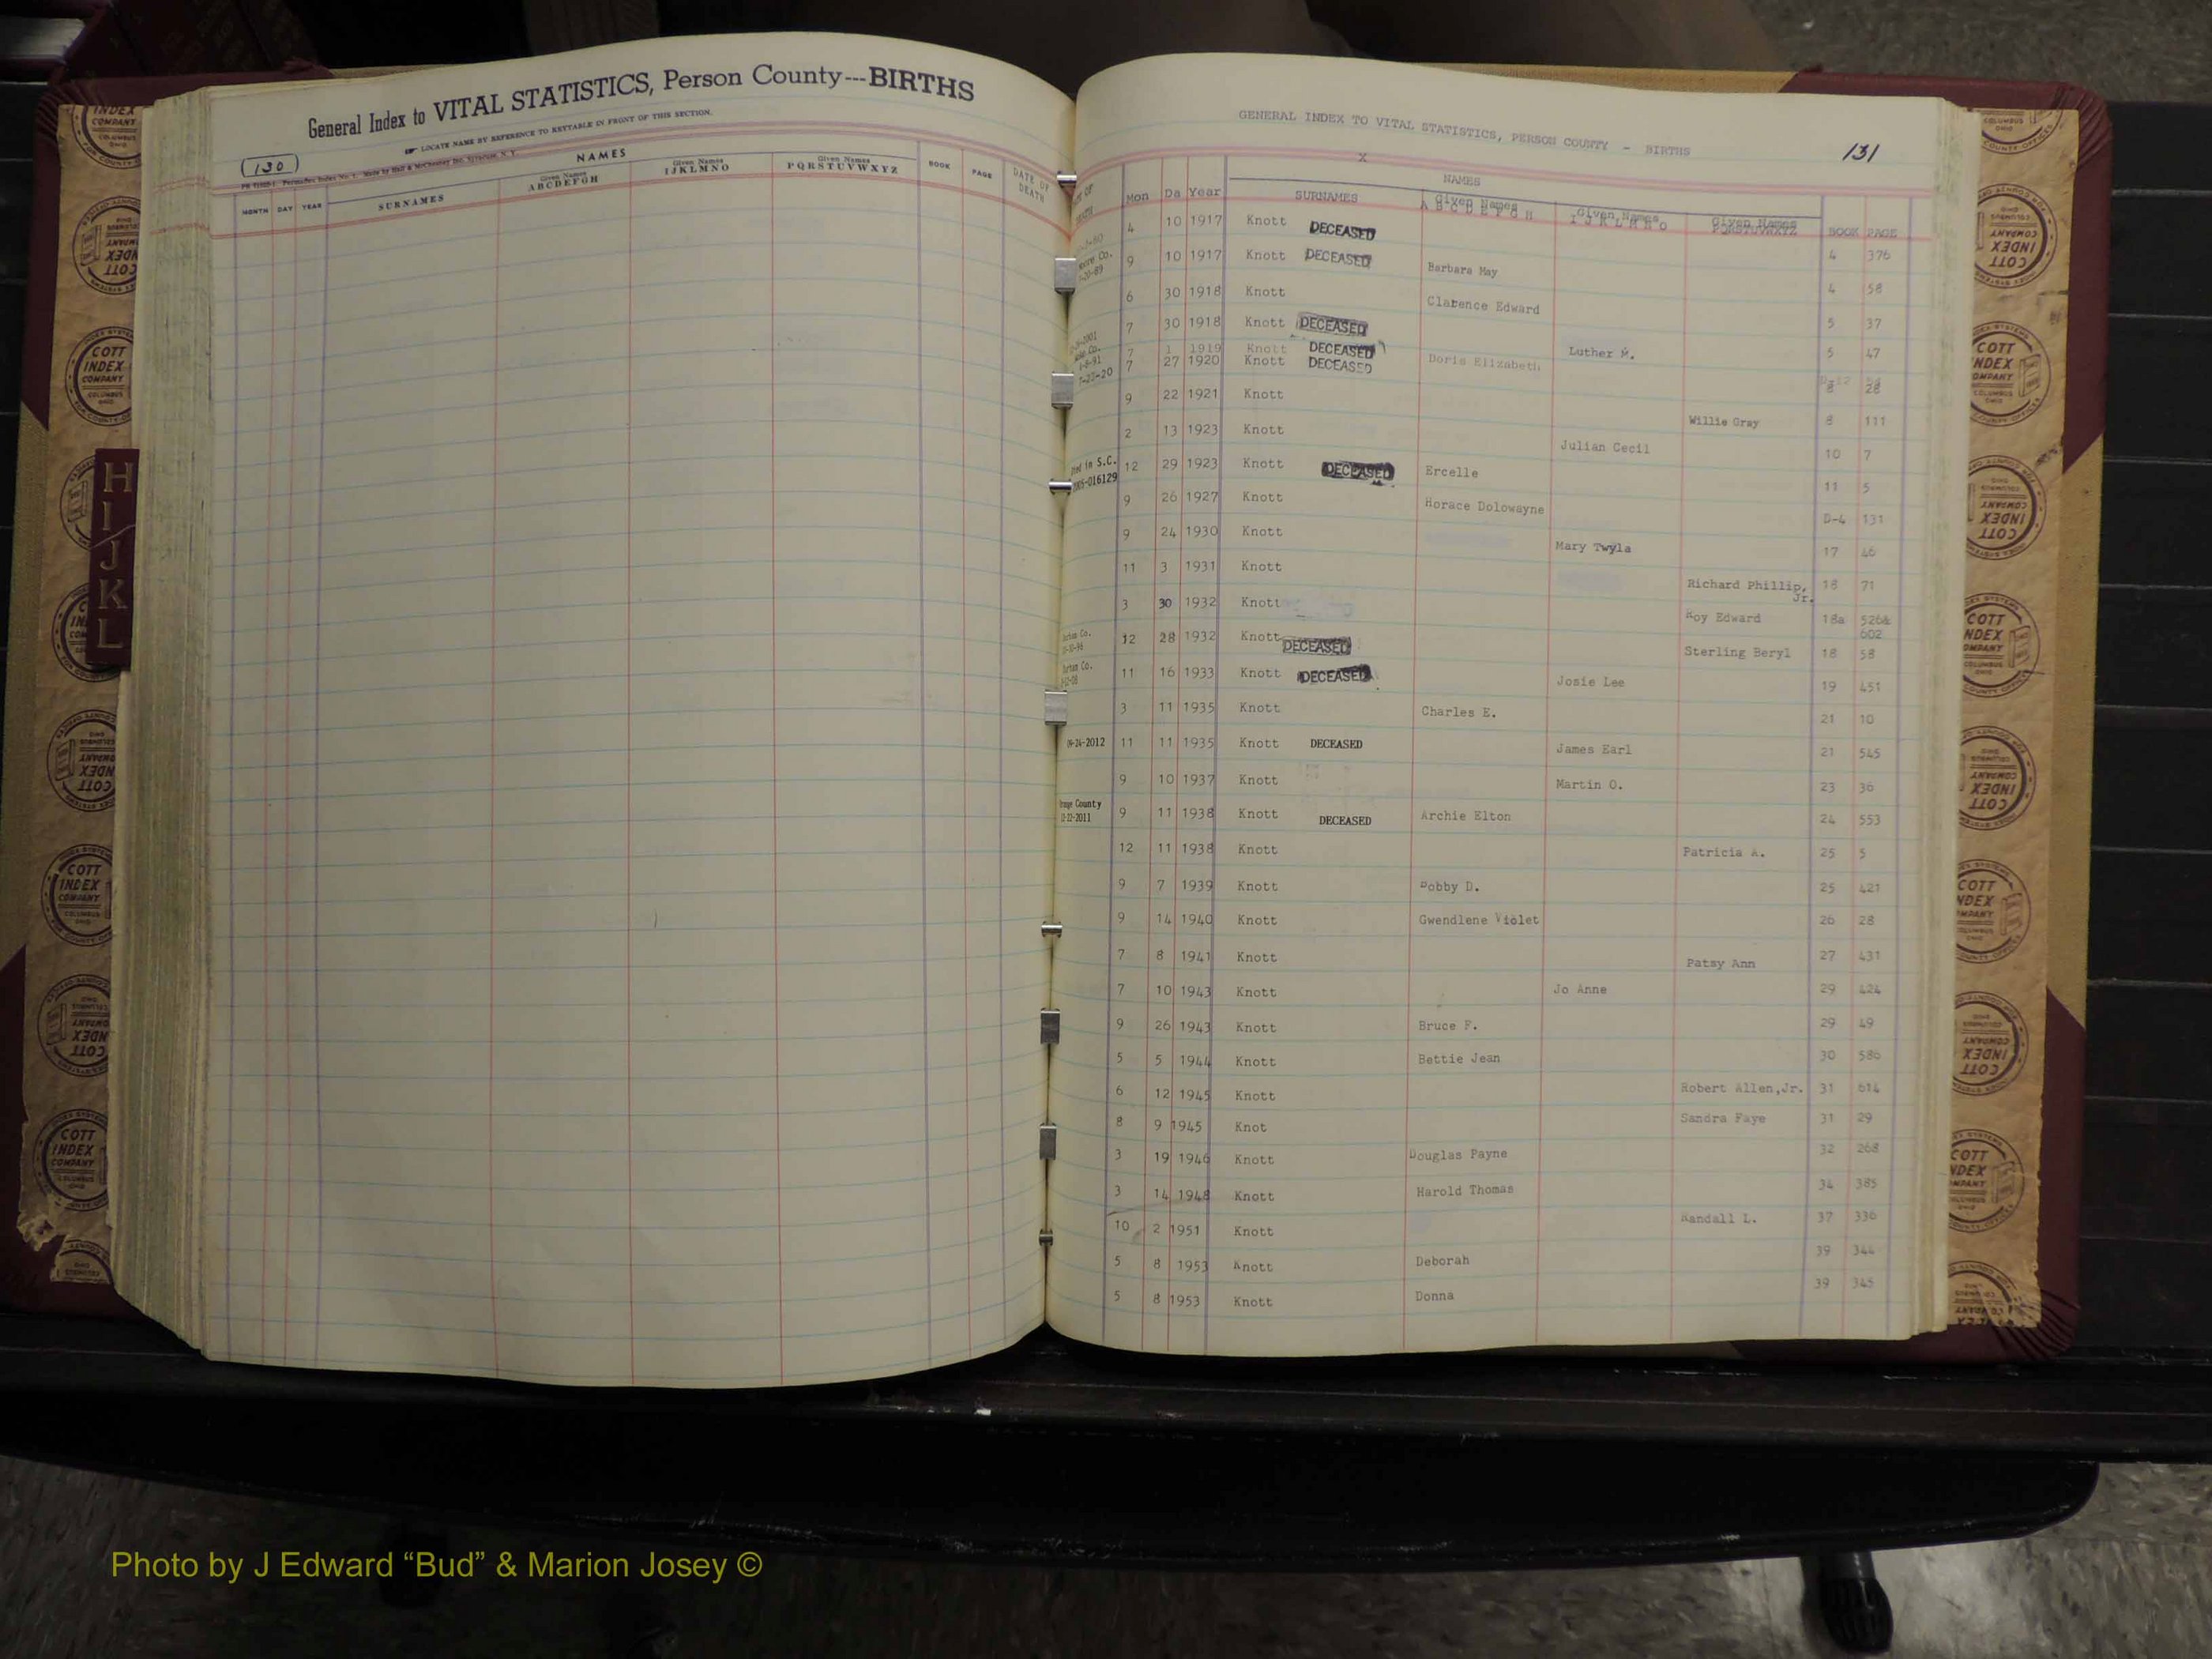 General Index to VITAL STATISTICS, Person County---BIRTHS
☞ LOCATE NAME BY REFERENCE TO KEYTABLE IN FRONT OF THIS SECTION.
(130)
NAMES
MONTH DAY YEAR SURNAMES Given Names ABCDEFGH Given Names IJKLMNO Given Names PQRSTUVWXYZ BOOK PAGE DATE OF DEATH
GENERAL INDEX TO VITAL STATISTICS, PERSON COUNTY - BIRTHS 131
X
NAMES
Mon Da Year SURNAMES Given Names A B C D E F G H Given Names I J K L M N O Given Names PQRSTUVWXYZ BOOK PAGE
4 10 1917 Knott DECEASED 4 376
9 10 1917 Knott DECEASED Barbara May 4 58
6 30 1918 Knott Clarence Edward 5 37
7 30 1918 Knott DECEASED Luther M. 5 47
7 1 1919 Knott DECEASED
7-20-20 7 27 1920 Knott DECEASED Doris Elizabeth 8 28
9 22 1921 Knott Willie Gray 8 111
2 13 1923 Knott Julian Cecil 10 7
in S.C. 12 29 1923 Knott DECEASED Ercelle 11 5
9 26 1927 Knott Horace Dolowayne D-4 131
9 24 1930 Knott Mary Twyla 17 46
11 3 1931 Knott Richard Phillip, Jr. 18 71
3 30 1932 Knott Roy Edward 18a 526& 602
12 28 1932 Knott DECEASED Sterling Beryl 18 58
11 16 1933 Knott DECEASED Josie Lee 19 451
3 11 1935 Knott Charles E. 21 10
09-24-2012 11 11 1935 Knott DECEASED James Earl 21 545
9 10 1937 Knott Martin O. 23 36
County 9 11 1938 Knott DECEASED Archie Elton 24 553
12 11 1938 Knott Patricia A. 25 5
9 7 1939 Knott Bobby D. 25 421
9 14 1940 Knott Gwendlene Violet 26 28
7 8 1941 Knott Patsy Ann 27 431
7 10 1943 Knott Jo Anne 29 424
9 26 1943 Knott Bruce F. 29 49
5 5 1944 Knott Bettie Jean 30 586
6 12 1945 Knott Robert Allen,Jr. 31 614
8 9 1945 Knot Sandra Faye 31 29
3 19 1946 Knott Douglas Payne 32 268
3 14 1948 Knott Harold Thomas 34 385
10 2 1951 Knott Randall L. 37 336
5 8 1953 Knott Deborah 39 344
5 8 1953 Knott Donna 39 345
H I J K L
COTT INDEX COMPANY COLUMBUS OHIO
Photo by J Edward “Bud” & Marion Josey ©